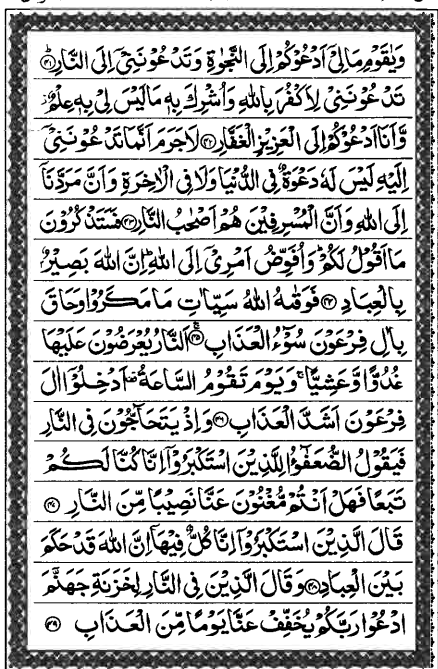 وَيٰقَوۡمِ مَالِىٓ اَدۡعُوۡكُمۡ اِلَى النَّجٰوةِ وَتَدۡعُوۡنَنِىۡٓ اِلَى النَّارِؕ ﴿۴۱﴾
تَدۡعُوۡنَنِىۡ لِاَكۡفُرَ بِاللّٰهِ وَاُشۡرِكَ بِهٖ مَا لَيۡسَ لِىۡ بِهٖ عِلۡمٌ
وَّاَنَا اَدۡعُوۡكُمۡ اِلَى الۡعَزِيۡزِ الۡغَفَّارِ ﴿۴۲﴾ لَا جَرَمَ اَنَّمَا تَدۡعُوۡنَنِىۡٓ
اِلَيۡهِ لَيۡسَ لَهٗ دَعۡوَةٌ فِى الدُّنۡيَا وَلَا فِى الۡاٰخِرَةِ وَاَنَّ مَرَدَّنَاۤ
اِلَى اللّٰهِ وَاَنَّ الۡمُسۡرِفِيۡنَ هُمۡ اَصۡحٰبُ النَّارِ ﴿۴۳﴾ فَسَتَذۡكُرُوۡنَ
مَاۤ اَقُوۡلُ لَكُمۡؕ وَاُفَوِّضُ اَمۡرِىۡٓ اِلَى اللّٰهِؕ اِنَّ اللّٰهَ بَصِيۡرٌۢ
بِالۡعِبَادِ ﴿۴۴﴾ فَوَقٰٮهُ اللّٰهُ سَيِّاٰتِ مَا مَكَرُوۡا وَحَاقَ
بِاٰلِ فِرۡعَوۡنَ سُوۡٓءُ الۡعَذَابِۚ ﴿۴۵﴾ اَلنَّارُ يُعۡرَضُوۡنَ عَلَيۡهَا
غُدُوًّا وَّعَشِيًّاۚ وَيَوۡمَ تَقُوۡمُ السَّاعَةُ اَدۡخِلُوۡۤا اٰلَ
فِرۡعَوۡنَ اَشَدَّ الۡعَذَابِ ﴿۴۶﴾ وَاِذۡ يَتَحَآجُّوۡنَ فِى النَّارِ
فَيَقُوۡلُ الضُّعَفٰٓؤُا لِلَّذِيۡنَ اسۡتَكۡبَرُوۡۤا اِنَّا كُنَّا لَكُمۡ
تَبَعًا فَهَلۡ اَنۡتُمۡ مُّغۡنُوۡنَ عَنَّا نَصِيۡبًا مِّنَ النَّارِ ﴿۴۷﴾
قَالَ الَّذِيۡنَ اسۡتَكۡبَرُوۡۤا اِنَّا كُلٌّ فِيۡهَاۤ اِنَّ اللّٰهَ قَدۡ حَكَمَ
بَيۡنَ الۡعِبَادِ ﴿۴۸﴾ وَقَالَ الَّذِيۡنَ فِى النَّارِ لِخَزَنَةِ جَهَنَّمَ
ادۡعُوۡا رَبَّكُمۡ يُخَفِّفۡ عَنَّا يَوۡمًا مِّنَ الۡعَذَابِ ﴿۴۹﴾